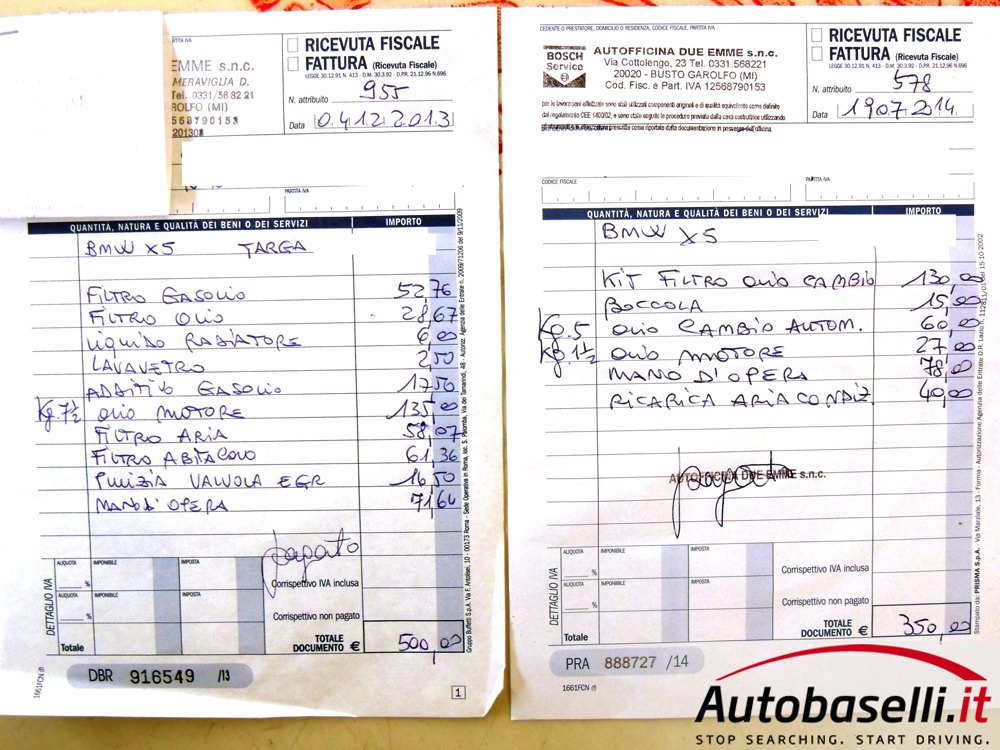 PARTITA IVA
EMME s.n.c.
MERAVIGLIA D.
Tel. 0331/56 82 21
ROLFO (MI)
568790153
RICEVUTA FISCALE
FATTURA (Ricevuta Fiscale)
LEGGE 30.12.91 N. 413 - D.M. 30.3.92 - D.P.R. 21.12.96 N.696
N. attribuito 955
Data 0.4.1.2.2013
PARTITA IVA
QUANTITÀ, NATURA E QUALITÀ DEI BENI O DEI SERVIZI IMPORTO
BMW X5 TARGA
FILTRO GASOLIO 52,76
FILTRO OLIO 28,67
LIQUIDO RADIATORE 6,00
LAVAVETRO 2,50
ADDITIVO GASOLIO 17,50
Kg. 7½ OLIO MOTORE 135,00
FILTRO ARIA 58,07
FILTRO ABITACOLO 61,36
PULIZIA VALVOLA EGR 16,50
MANO D'OPERA 71,64
pagato
DETTAGLIO IVA
ALIQUOTA IMPONIBILE IMPOSTA
%
Corrispettivo IVA inclusa
ALIQUOTA IMPONIBILE IMPOSTA
%
Corrispettivo non pagato
Totale
TOTALE DOCUMENTO € 500,00
DBR 916549 /13
1661FCN (f)
1
CEDENTE O PRESTATORE, DOMICILIO O RESIDENZA, CODICE FISCALE, PARTITA IVA
BOSCH
Service
AUTOFFICINA DUE EMME s.n.c.
Via Cottolengo, 23 Tel. 0331.568221
20020 - BUSTO GAROLFO (MI)
Cod. Fisc. e Part. IVA 12568790153
per le lavorazioni effettuate sono stati utilizzati componenti originali e di qualità equivalente come definito
dal regolamento CEE 1400/02, e sono state seguite le procedure previste dalla casa costruttrice utilizzando
RICEVUTA FISCALE
FATTURA (Ricevuta Fiscale)
LEGGE 30.12.91 N. 413 - D.M. 30.3.92 - D.P.R. 21.12.96 N.696
N. attribuito 578
Data 19.07.2014
CODICE FISCALE
PARTITA IVA
QUANTITÀ, NATURA E QUALITÀ DEI BENI O DEI SERVIZI IMPORTO
BMW X5
KIT FILTRO OLIO CAMBIO 130,00
BOCCOLA 15,00
Kg. 5 OLIO CAMBIO AUTOM. 60,00
Kg 1½ OLIO MOTORE 27,00
MANO D'OPERA 78,00
RICARICA ARIA CONDIZ. 40,00
AUTOFFICINA DUE EMME s.n.c.
pagato
DETTAGLIO IVA
ALIQUOTA IMPONIBILE IMPOSTA
%
Corrispettivo IVA inclusa
ALIQUOTA IMPONIBILE IMPOSTA
%
Corrispettivo non pagato
Totale
TOTALE DOCUMENTO € 350,00
PRA 888727 /14
1661FCN (f)
Autobaselli.it
STOP SEARCHING. START DRIVING.